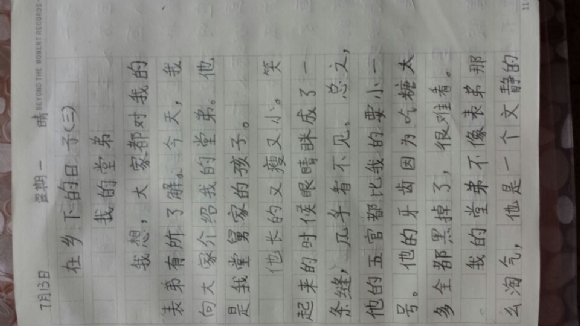 THE MOMENT RECORDS
7月13日 星期一 晴
在乡下的日子(三)
我的堂弟
我想，大家都对我的
表弟有所了解。今天，我
向大家介绍我的堂弟。他
是我堂舅家的孩子。
他长的又瘦又小。笑
起来的时候眼睛眯成了一
条缝，几乎看不见。总之，
他的五官都比我的要小一
号。他的牙齿因为吃糖太
多全都黑掉了，很难看。
我的堂弟不像表弟那
么淘气，他是一个文静的
11